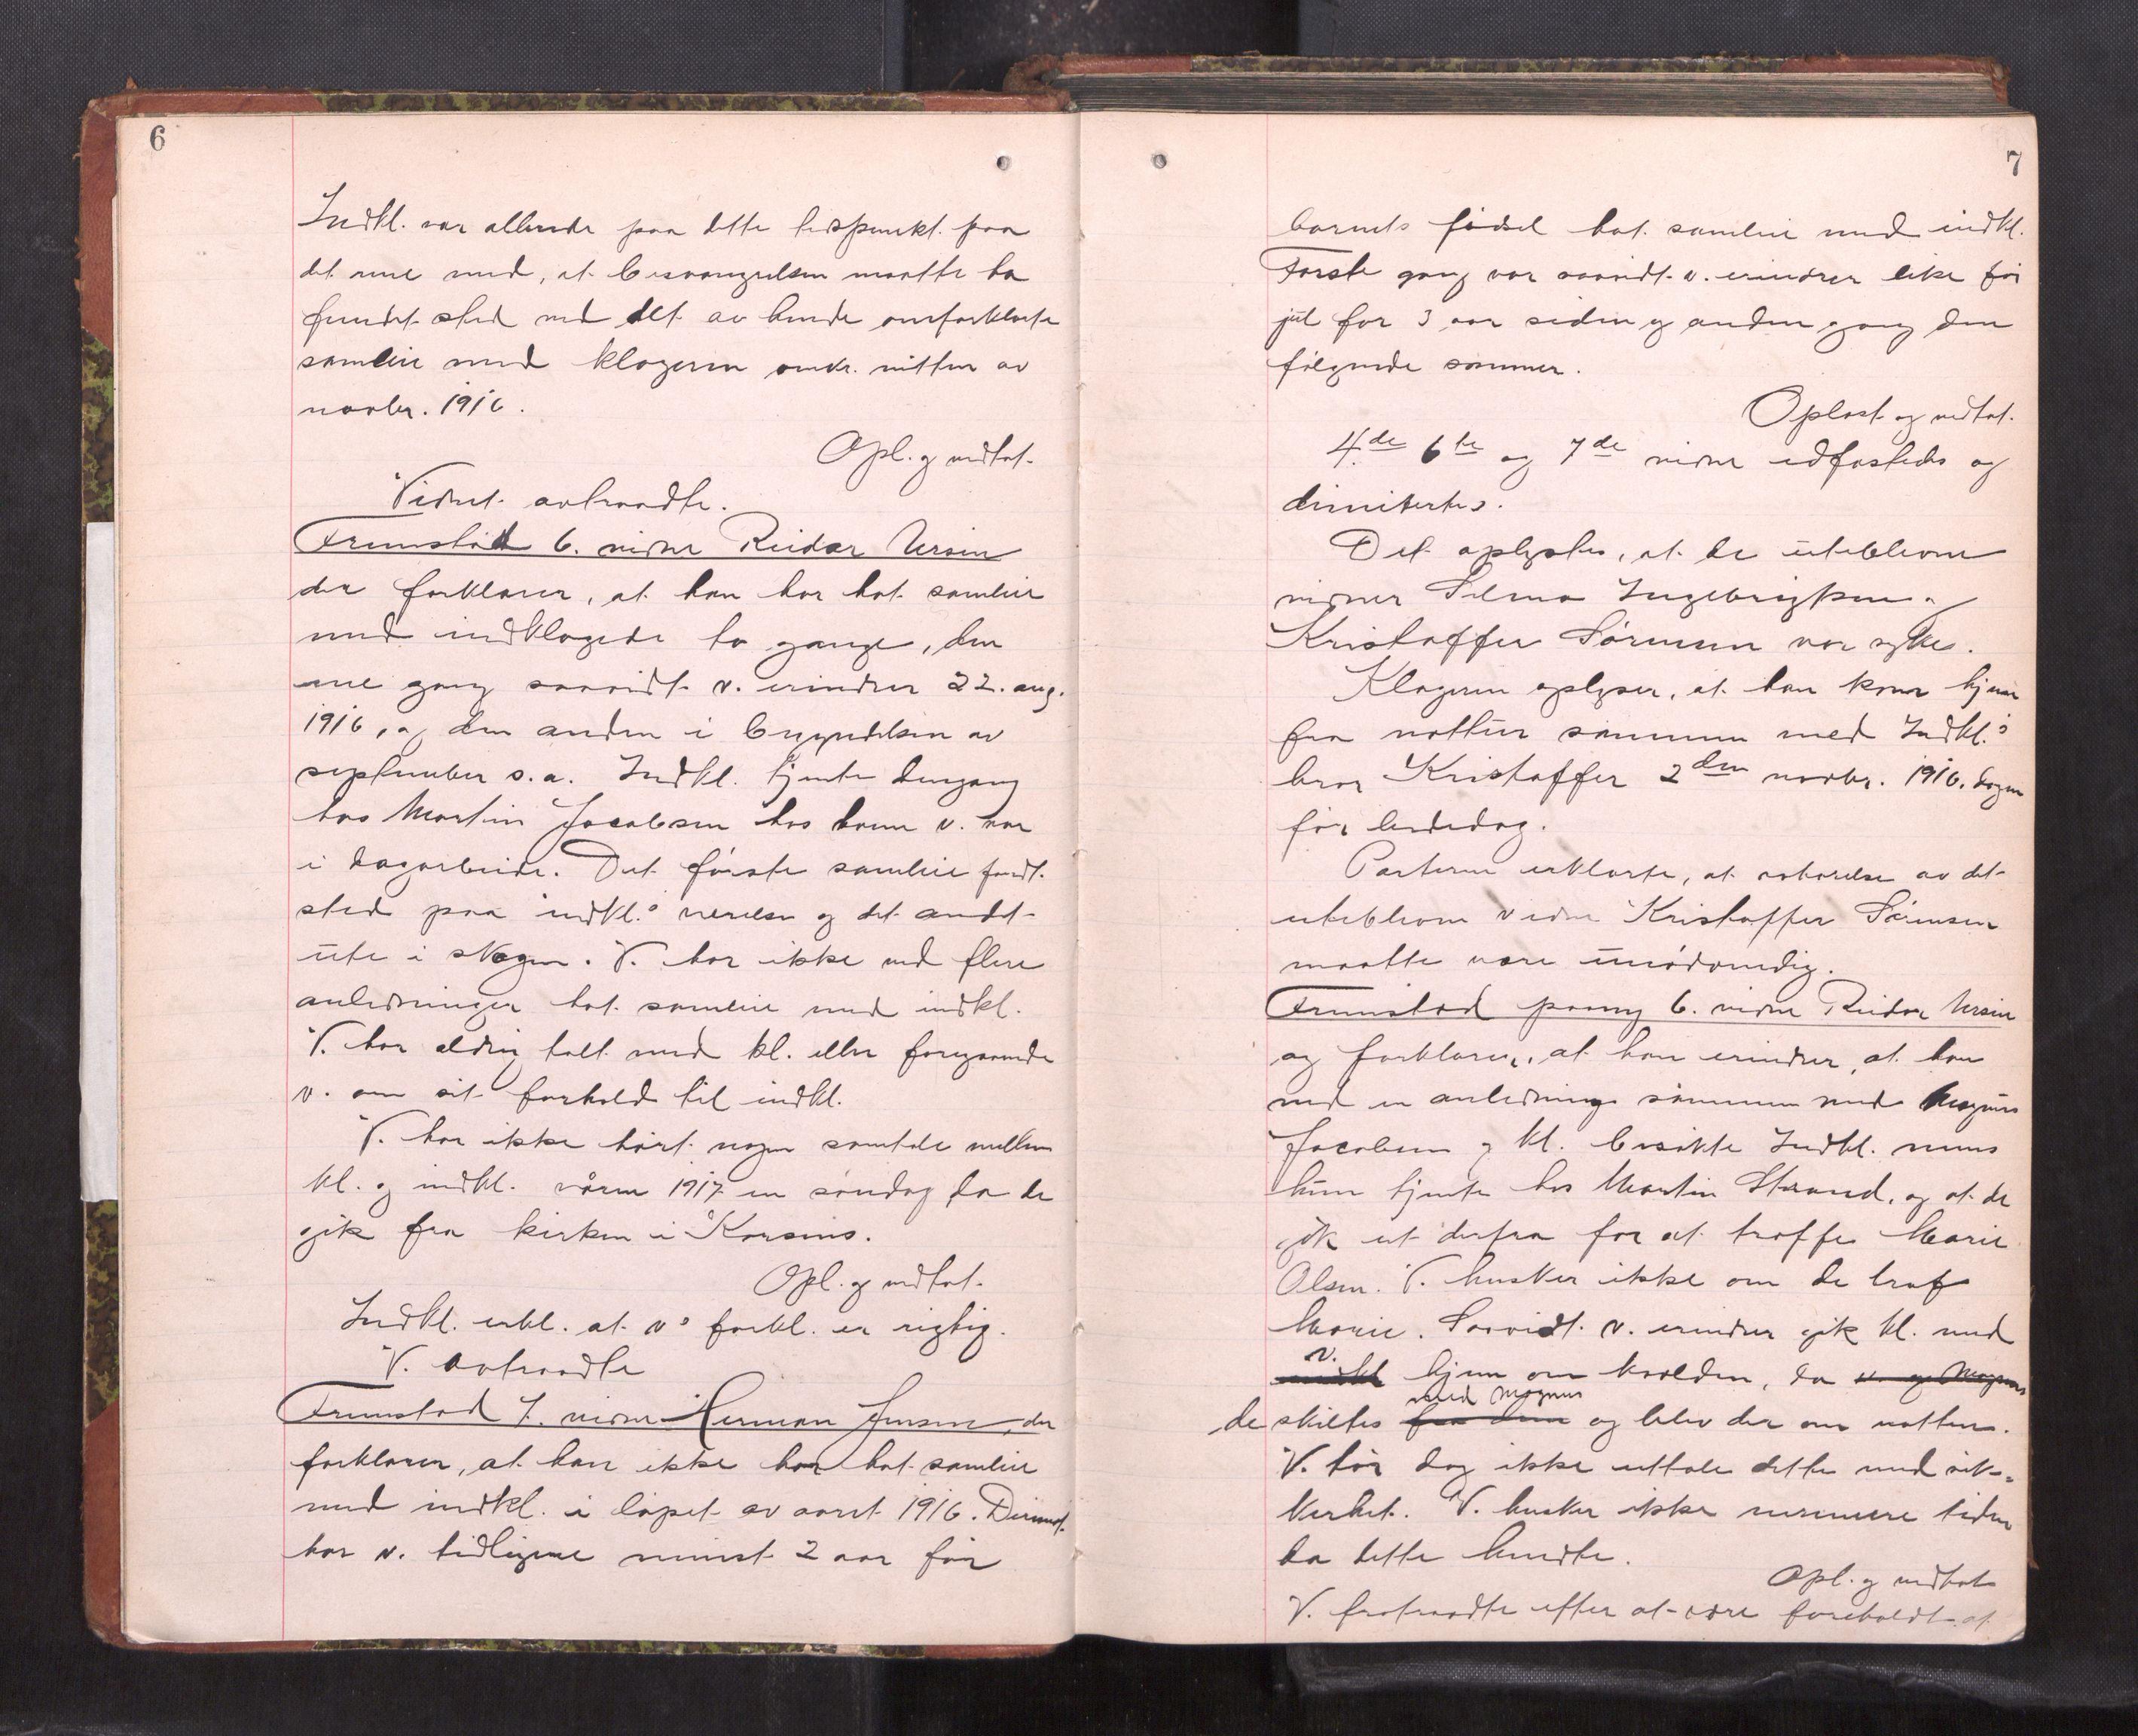 6
Indkl. var allerede paa dette tidspunkt paa
det rene med, at besvangrelsen maatte ha
fundet sted ved det av hende omforklarte
samleie med klageren omkr. mitten av
novbr. 1916.
Opl. og vedtat.
Vidnet avtraadte.
Fremstod 6. vidne Reidar Ursin
der forklarer, at han har hat samleie
med indklagede to gange, den
ene gang saavidt v. erindrer 22. aug.
1916, og den anden i begyndelsen av
september s.a. Indkl. tjente dengang
hos Martin Jacobsen hos hvem v. var
i dagarbeide. Det første samleie fandt
sted paa indkl.s værelse og det andet
ute i skogen. V. har ikke ved flere
anledninger hat samleie med indkl.
V. har aldrig talt med kl. eller foregaaende
v. om sit forhold til indkl.
V. har ikke hørt nogen samtale mellem
kl. og indkl. våren 1917 en søndag da de
gik fra kirken i Korsnes.
Opl. og vedtat.
Indkl. erkl. at v.s forkl. er rigtig.
V. avtraadte
Fremstod 7. vidne Herman Jensen, der
forklarer, at han ikke har hat samleie
med indkl. i løpet av aaret 1916. Derimot
har v. tidligere minst 2 aar før
7
barnets fødsel hat samleie med indkl.
Første gang var saavidt v. erindrer like før
jul for 3 aar siden og anden gang den
følgende sommer.
Oplæst og vedtat.
4.de 6te og 7de vidne edfæstedes og
dimitertes.
Det oplystes, at de uteblevne
vidner Selma Ingebrigtsen og
Kristoffer Sørensen var syke.
Klageren oplyser, at han kom hjem
fra nattur sammen med Indkl.s
bror Kristoffer 2den novbr. 1916, dagen
før bededag.
Parterne erklærte, at avhørelse av det
uteblevne vidne Kristoffer Sørensen
maatte være unødvendig.
Fremstod paany 6. vidne Reidar Ursin
og forklarer, at han erindrer, at han
ved en anledning sammen med Magnus
Jacobsen og kl. besøkte Indkl. mens
hun tjente hos Martin Strand, og at de
gik ut derfra for at træffe Marie
Olsen. V. husker ikke om de traf
Marie. Saavidt v. erindrer gik kl. med
v.
indkl hjem om kvelden, da v. og Magnus
med Magnus
de skiltes fra dem og blev der om natten.
V. tør dog ikke uttale dette med sik-
kerhet. V. husker ikke nærmere tiden
da dette hendte.
Opl. og vedtat
V. fratraadte efter at være foreholdt at